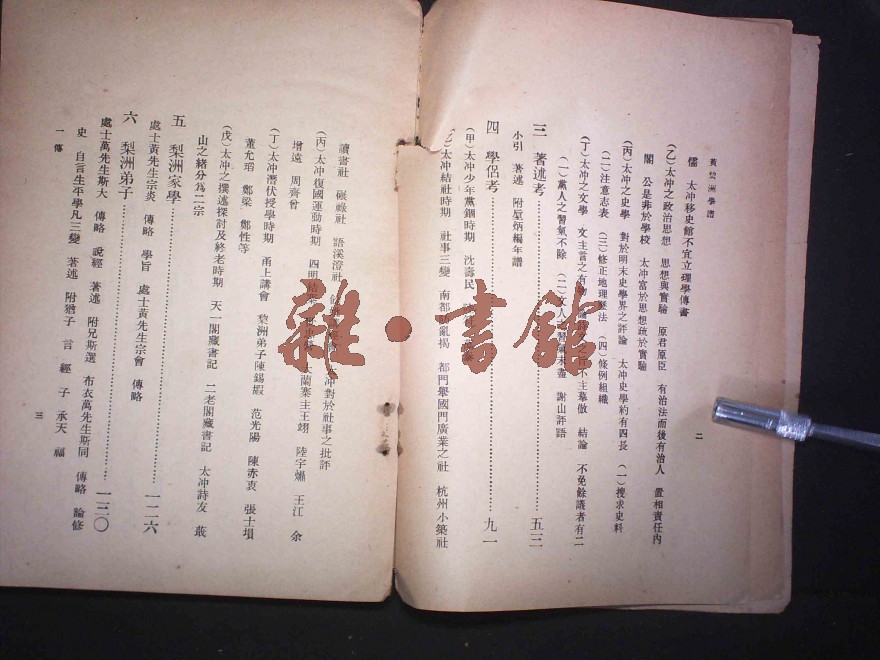 黃棃洲學譜
二
儒　太冲移史館不宜立理學傳書
(乙)太冲之政治思想　思想與實驗　原君原臣　有治法而後有治人　置相責任內
閣　公是非於學校　太冲富於思想疏於實驗
(丙)太冲之史學　對於明末史學界之評論　太冲史學約有四長　(一)搜求史料
(二)注意志表　(三)修正地理曆法　(四)條例組織
(丁)太冲之文學　文主言之有　不主摹倣　結論　不免餘議者有二
(一)黨人之習氣不除　(二)文人之習氣未盡　謝山評語
三　著述考……五三
小引　著述　附垕炳編年譜
四　學侶考……九一
(甲)太冲少年黨錮時期　沈壽民
太冲結社時期　社事三變　南都　亂揭　都門舉國門廣業之社　杭州小築社
讀書社　硯祿社　語溪澄社　冲對於社事之批評
(丙)太冲復國運動時期　四明結寨　大蘭寨主王翊　陸宇㷍　王江　余
增遠　周齊曾
(丁)太冲潛伏授學時期　甬上講會　棃洲弟子陳錫嘏　范光陽　陳赤衷　張士塤
董允瑫　鄭梁　鄭性等
(戊)太冲之撰述探討及終老時期　天一閣藏書記　二老閣藏書記　太冲詩友　蕺
山之緒分爲二宗
五　梨洲家學……一二六
處士黃先生宗炎　傳略　學旨　處士黃先生宗會　傳略
六　梨洲弟子……一三〇
處士萬先生斯大　傳略　說經　著述　附兄斯選　布衣萬先生斯同　傳略　論修
史　自言生平學凡三變　著述　附猶子　言　經　子　承天　福
一傳
三
雜·書館